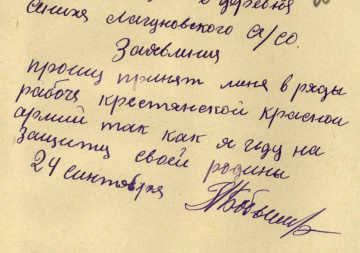 деревня
Сениха Лагуновского с/со.
Заявления
прошу принят меня в ряды
рабоче крестянской красной
армий так как я иду на
защиту своей родины
24 синтября